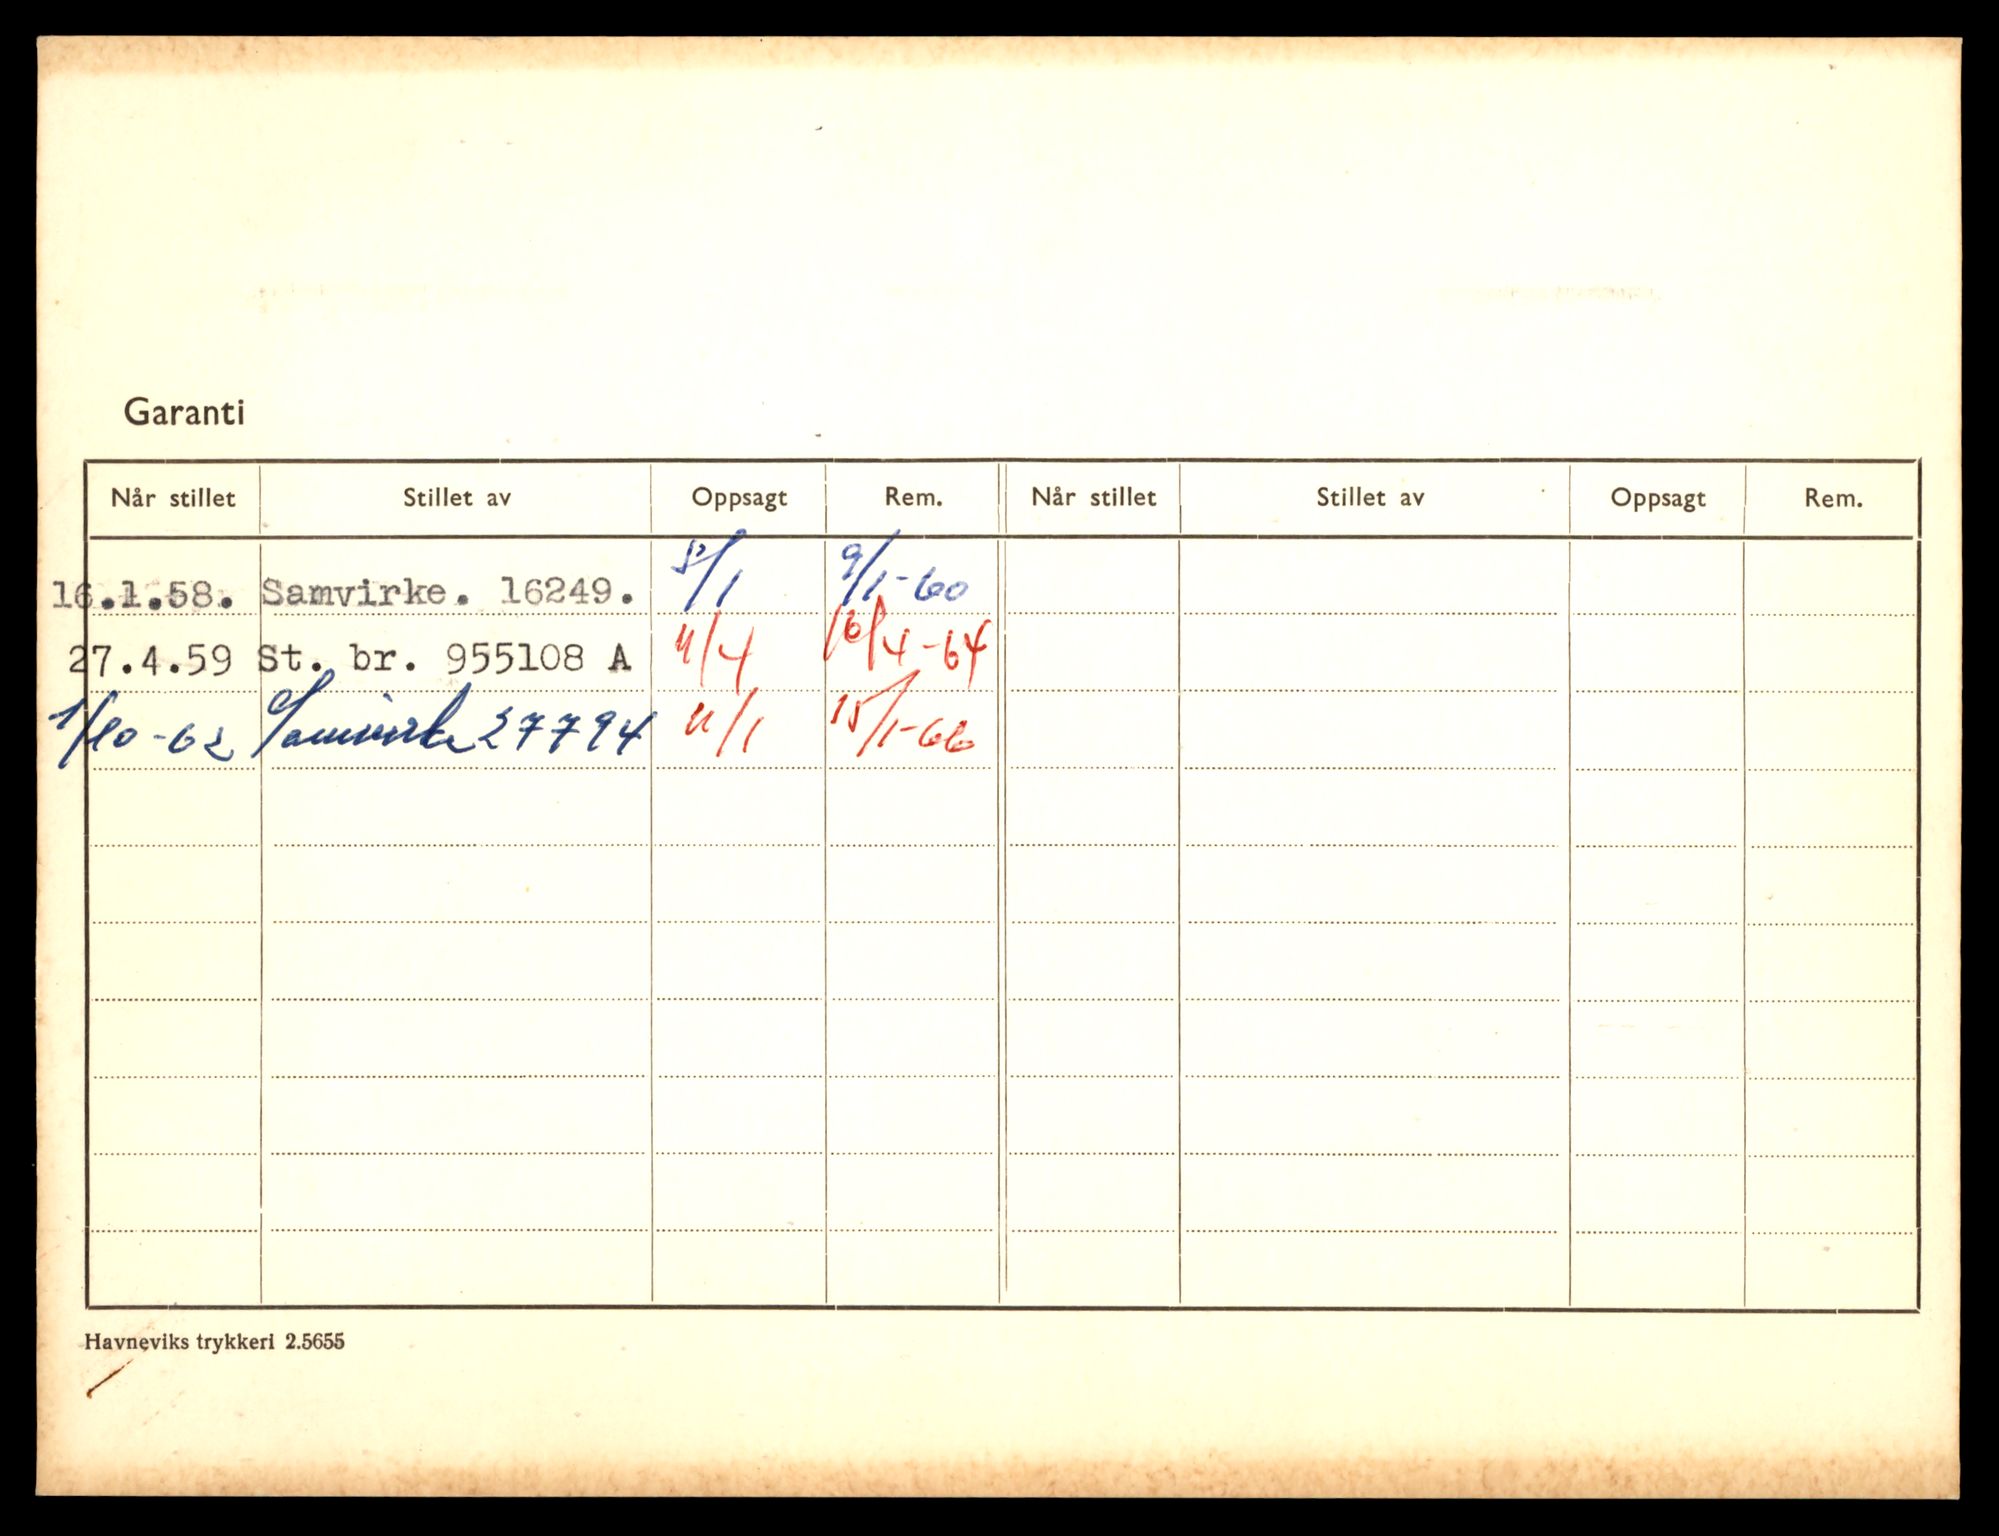 Garanti
Når stillet Stillet av Oppsagt Rem. Når stillet Stillet av Oppsagt Rem.
16.1.58. Samvirke. 16249. 5/1 9/1-60
27.4.59 St. br. 955108 A 11/4 16/4-64
1/10-62 Samvirke 27794 11/1 15/1-66
Havneviks trykkeri 2.5655